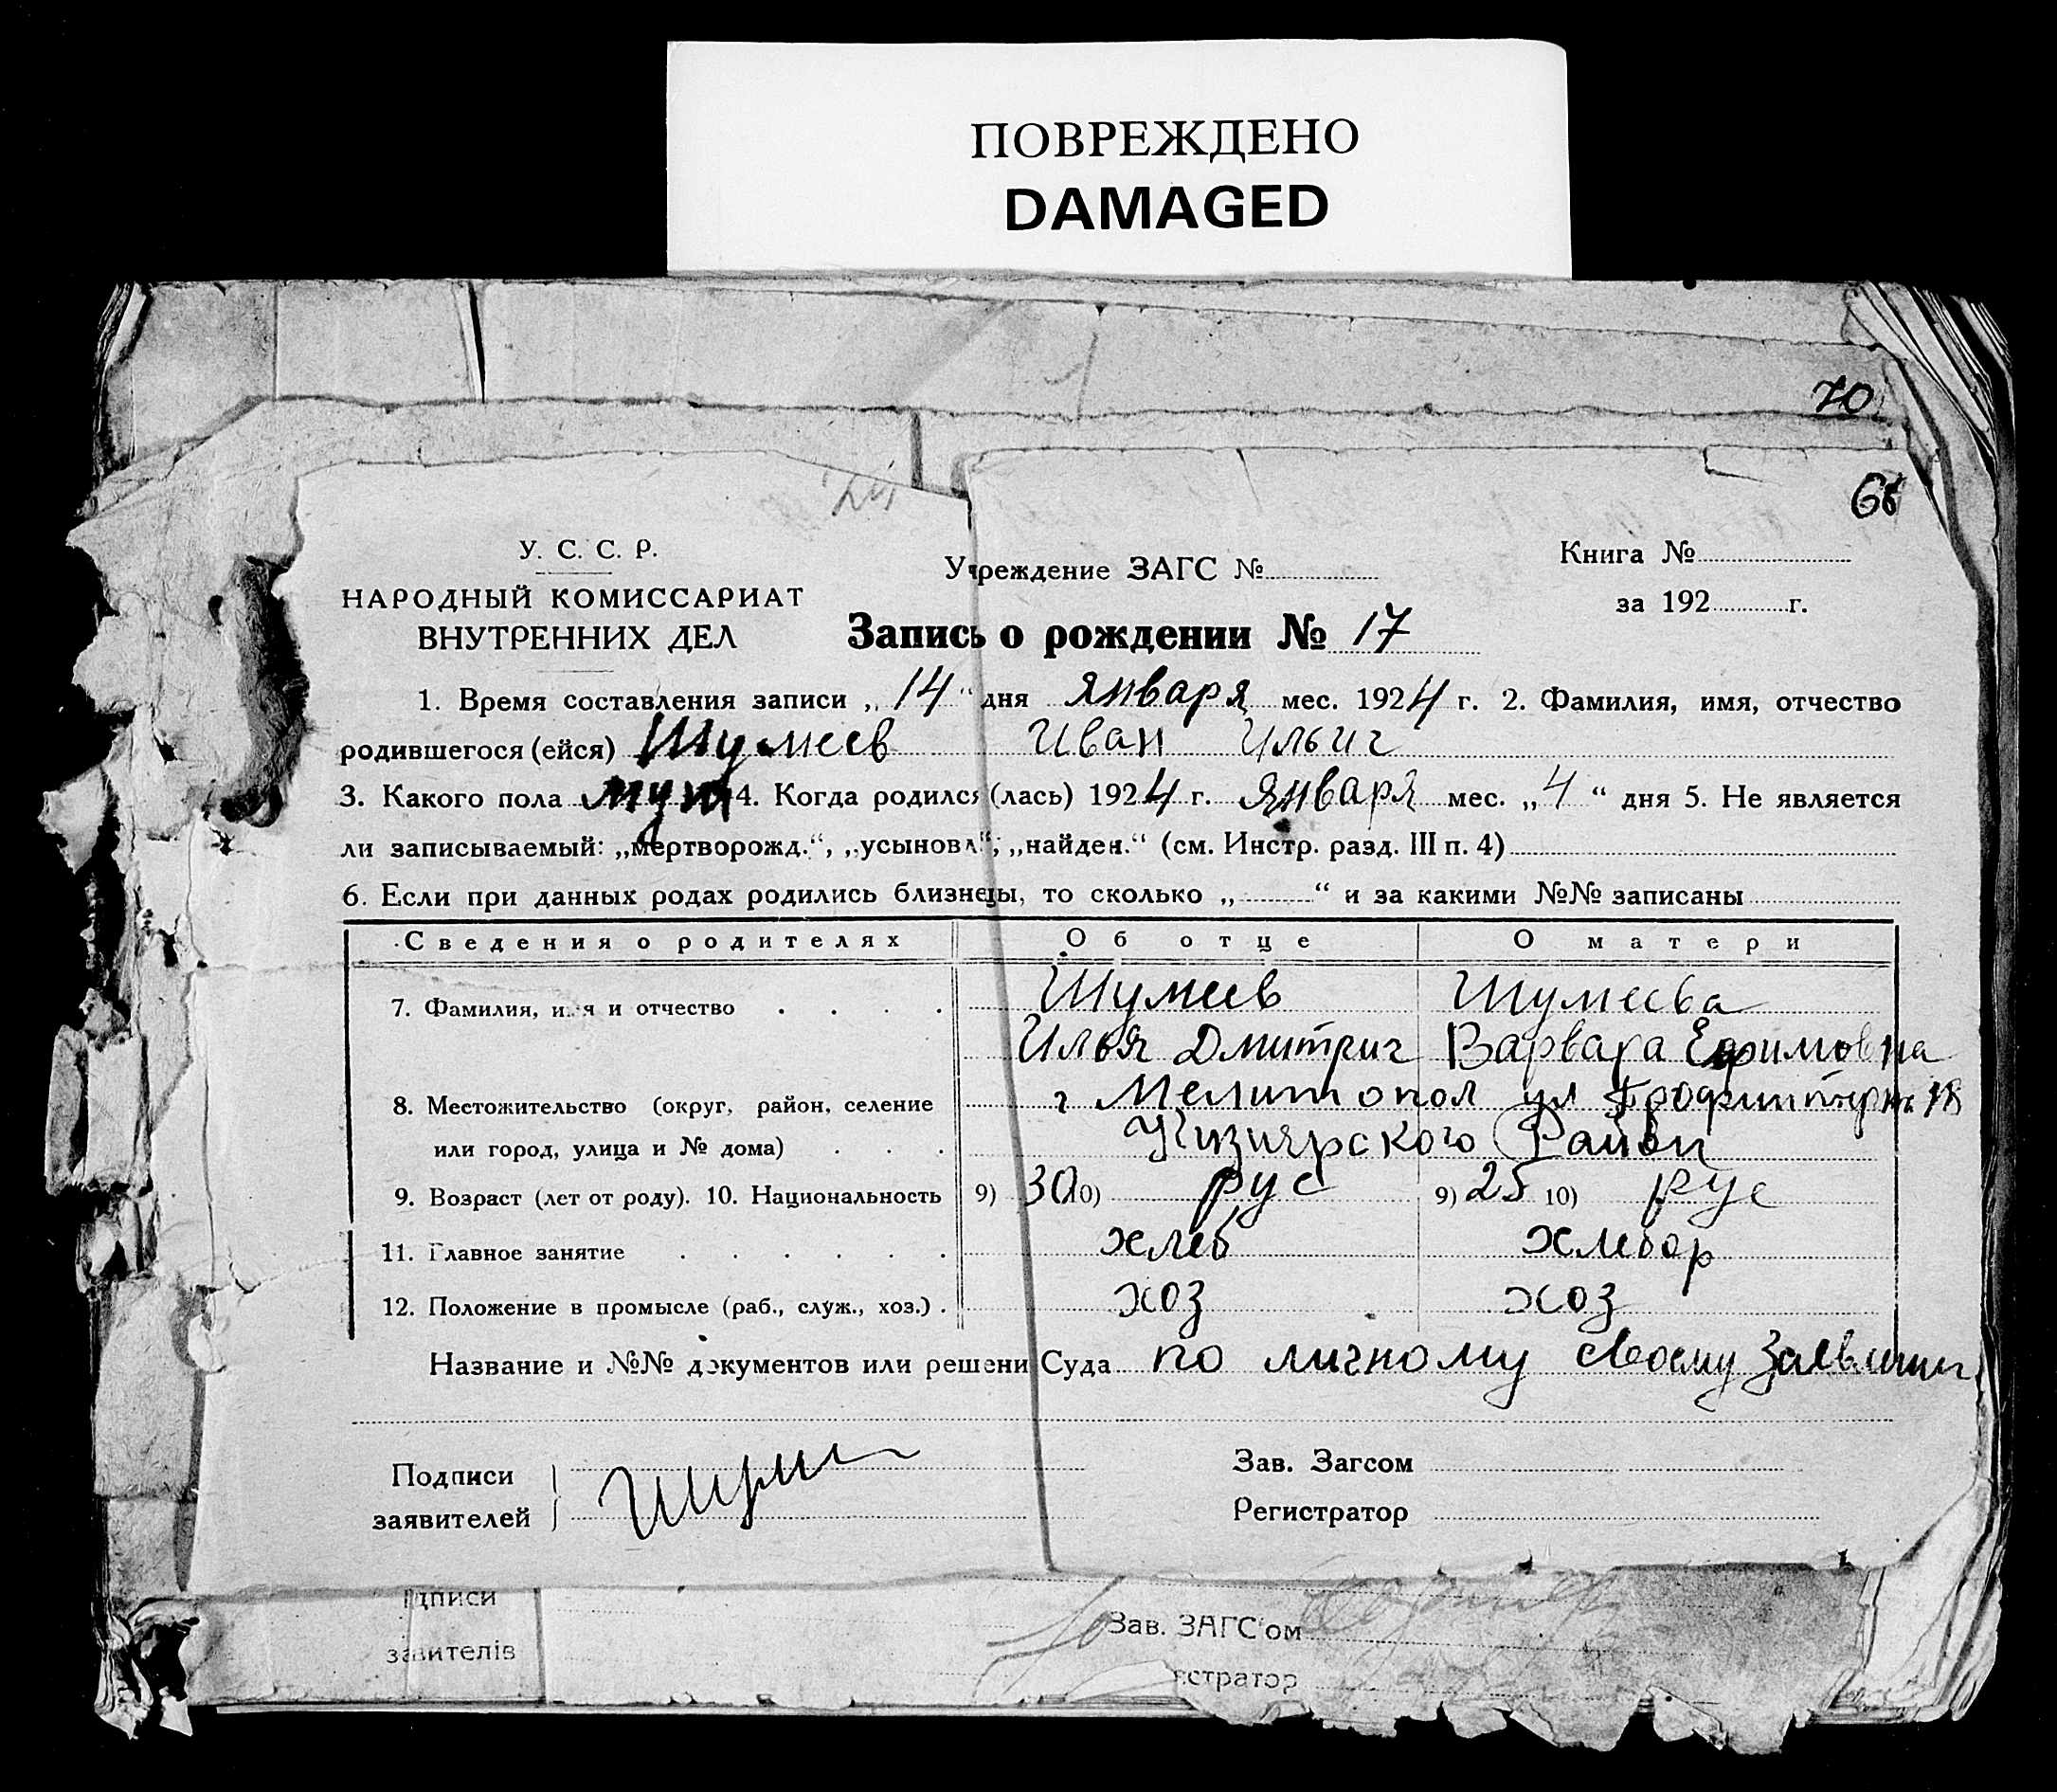 ПОВРЕЖДЕНО
DAMAGED
70
У. С. С. Р.
НАРОДНЫЙ КОМИССАРИАТ
ВНУТРЕННИХ ДЕЛ
Учреждение ЗАГС №
Книга №
за 192 г.
Запись о рождении № 17
1. Время составления записи „ 14 “ дня января мес. 1924 г. 2. Фамилия, имя, отчество
родившегося (ейся) Шумеев Иван Ильич
3. Какого пола муж 4. Когда родился (лась) 1924 г. января мес. „ 4 “ дня 5. Не является
ли записываемый: „мертворожд.“, „усыновл.“, „найден.“ (см. Инстр. разд. III п. 4)
6. Если при данных родах родились близнецы, то сколько „ “ и за какими №№ записаны
Сведения о родителях Об отце О матери
7. Фамилия, имя и отчество Шумеев Шумеева
Илья Дмитрич Варвара Ефимовна
8. Местожительство (округ, район, селение г Мелитопол ул
или город, улица и № дома) Кизиярского Район
9. Возраст (лет от роду). 10. Национальность 9) 30 10) рус 9) 25 10) рус
11. Главное занятие хлеб хлебор
12. Положение в промысле (раб., служ., хоз.) хоз хоз
Название и №№ документов или решени Суда по личному своему
Подписи
заявителей
Зав. Загсом
Регистратор
дписи
завителів
Зав. ЗАГС'ом
стратор